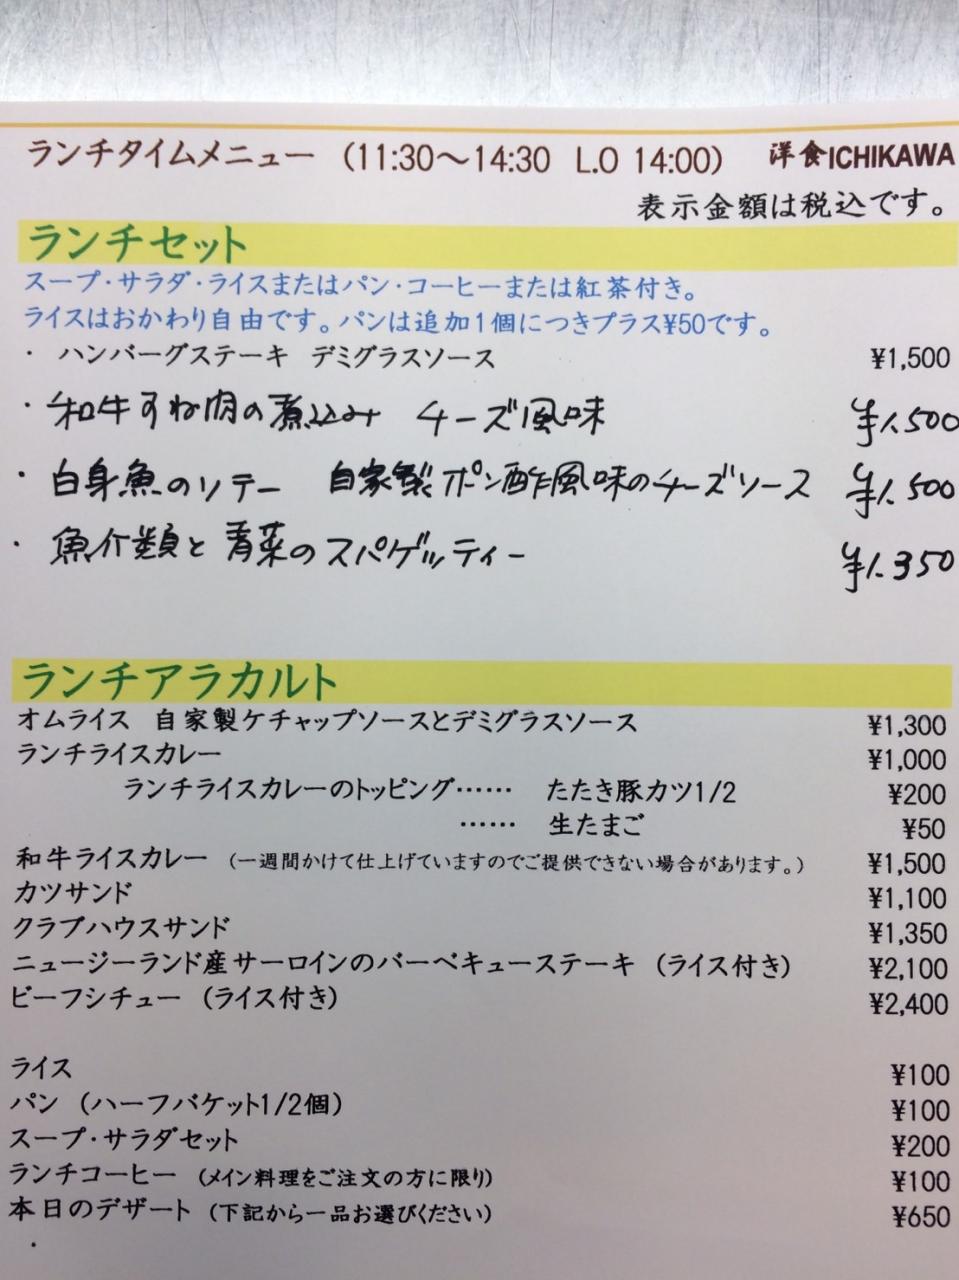 ランチタイムメニュー (11:30～14:30 L.O 14:00) 洋食ICHIKAWA
表示金額は税込です。
ランチセット
スープ・サラダ・ライスまたはパン・コーヒーまたは紅茶付き。
ライスはおかわり自由です。パンは追加1個につきプラス¥50です。
・ ハンバーグステーキ デミグラスソース ¥1,500
・ 和牛すね肉の煮込み チーズ風味 ¥1.500
・ 白身魚のソテー 自家製ポン酢風味のチーズソース ¥1.500
・ 魚介類と青菜のスパゲッティー ¥1.350
ランチアラカルト
オムライス 自家製ケチャップソースとデミグラスソース ¥1,300
ランチライスカレー ¥1,000
ランチライスカレーのトッピング…… たたき豚カツ1/2 ¥200
…… 生たまご ¥50
和牛ライスカレー (一週間かけて仕上げていますのでご提供できない場合があります。) ¥1,500
カツサンド ¥1,100
クラブハウスサンド ¥1,350
ニュージーランド産サーロインのバーベキューステーキ (ライス付き) ¥2,100
ビーフシチュー (ライス付き) ¥2,400
ライス ¥100
パン (ハーフバケット1/2個) ¥100
スープ・サラダセット ¥200
ランチコーヒー (メイン料理をご注文の方に限り) ¥100
本日のデザート (下記から一品お選びください) ¥650
・